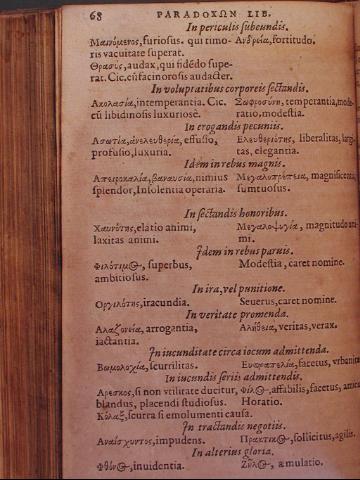 68 PARADOXΩN LIB.
In periculis subeundis.
Μαινόμενος, furiosus. qui timo- Ἀνδρεία, fortitudo.
ris vacuitate superat.
Θρασύς, audax, qui fidēdo supe-
rat. Cic. cū facinorosis audacter.
In voluptatibus corporeis sectandis.
Ακολασία, intemperantia. Cic. Σωφροσύνη, temperantia, mode-
cū libidinosis luxuriosè. ratio, modestia.
In erogandis pecuniis.
Ασωτία, ἀνελευθερία, effusio, Ελευθεριότης, liberalitas, largi-
profusio, luxuria. tas, elegantia.
Idem in rebus magnis.
Απειροκαλία, βαναυσία, nimius Μεγαλοπρέπεια, magnificentia,
splendor, Insolentia operaria. sumtuosus.
In sectandis honoribus.
Χαυνότης, elatio animi, Μεγαλοψυχία, magnitudo ani-
laxitas animi. mi.
Idem in rebus paruis.
Φιλότιμος, superbus, Modestia, caret nomine.
ambitiosus.
In ira, vel punitione.
Οργιλότης, iracundia. Seuerus, caret nomine.
In veritate promenda.
Αλαζονεία, arrogantia, Αλήθεια, veritas, verax.
iactantia.
In iucunditate circa iocum admittenda.
Βωμολοχία, scurrilitas. Ευτραπελία, facetus, vrbanita
In iucundis seriis admittendis.
Αρεσκος, si non vtilitate ducitur, Φίλος, affabilis, facetus, amicus
blandus, placendi studiosus. Horatio.
Κόλαξ, scurra si emolumenti causa.
In tractandis negotiis.
Αναίσχυντος, impudens. Πρακτικός, sollicitus, agilis.
In alterius gloria.
Φθόνος, inuidentia. Ζῆλος, æmulatio.